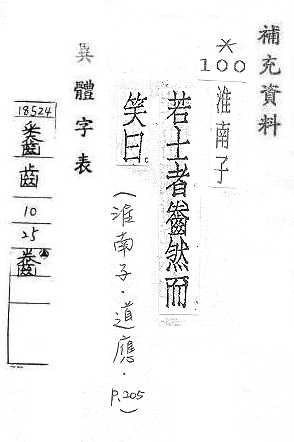 補充資料
*
100
淮南子
若士者齤然而
笑曰。
(淮南子·道應·P.205)
異體字表
18524
齒
10
25